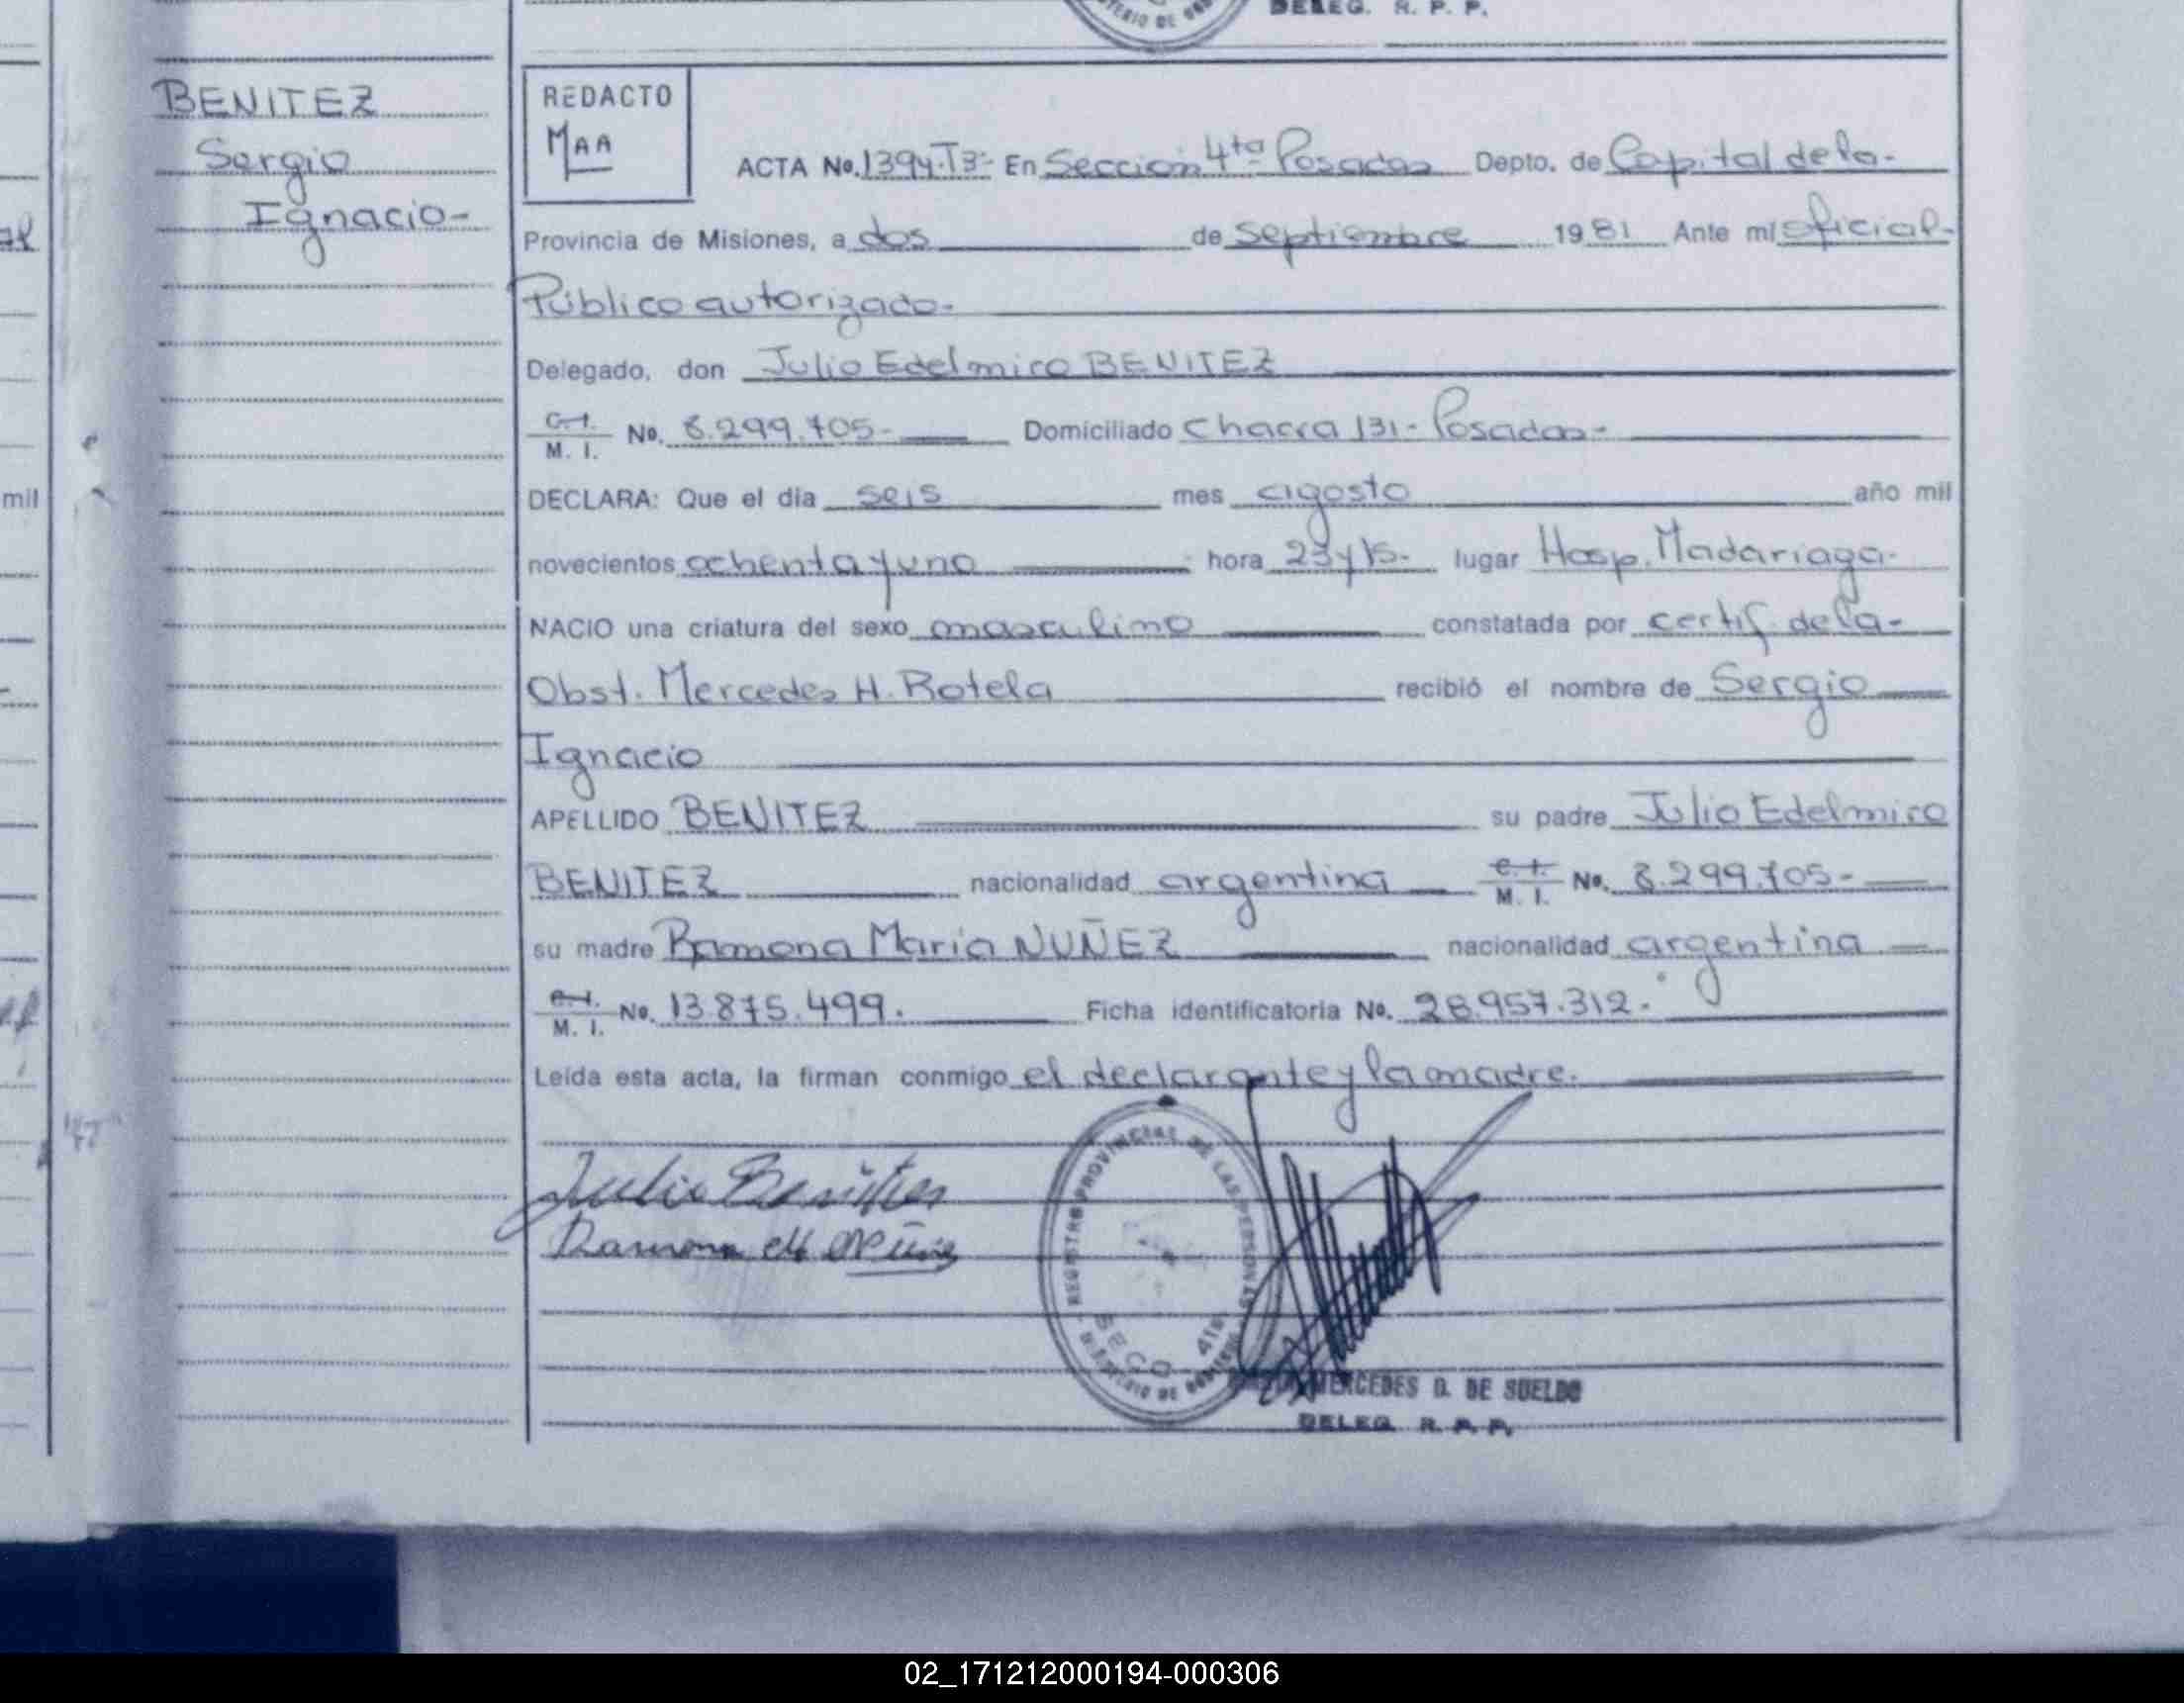 DELEG. R. P. P.
BENITEZ
Sergio
Ignacio-
REDACTO
MAA
ACTA No. 1394-T3- En Sección 4ta Posadas Depto. de Capital de la-
Provincia de Misiones, a dos de septiembre 1981 Ante mí oficial-
Público autorizado-
Delegado, don Julio Edelmiro BENITEZ
C.I.
M. I. No. 8.299.705- Domiciliado Chacra 131- Posadas-
DECLARA: Que el día seis mes agosto año mil
novecientos ochenta y uno hora 23 y 15- lugar Hosp. Madariaga-
NACIO una criatura del sexo masculino constatada por certif. de la-
Obst. Mercedes H. Rotela recibió el nombre de Sergio
Ignacio
APELLIDO BENITEZ su padre Julio Edelmiro
BENITEZ nacionalidad argentina C.I.
M. I. No. 8.299.705-
su madre Ramona María NUÑEZ nacionalidad argentina
C.I.
M. I. No. 13.875.499. Ficha identificatoria No. 28.957.312-
Leída esta acta, la firman conmigo el declarante y la madre.
Julio Benitez
Ramona M Nuñez
REGISTRO PROVINCIAL DE LAS PERSONAS
SECC. 4ta
MINISTERIO DE GOBIERNO
MERCEDES D. DE SUELDO
DELEG. R. P. P.
mil
02_171212000194-000306